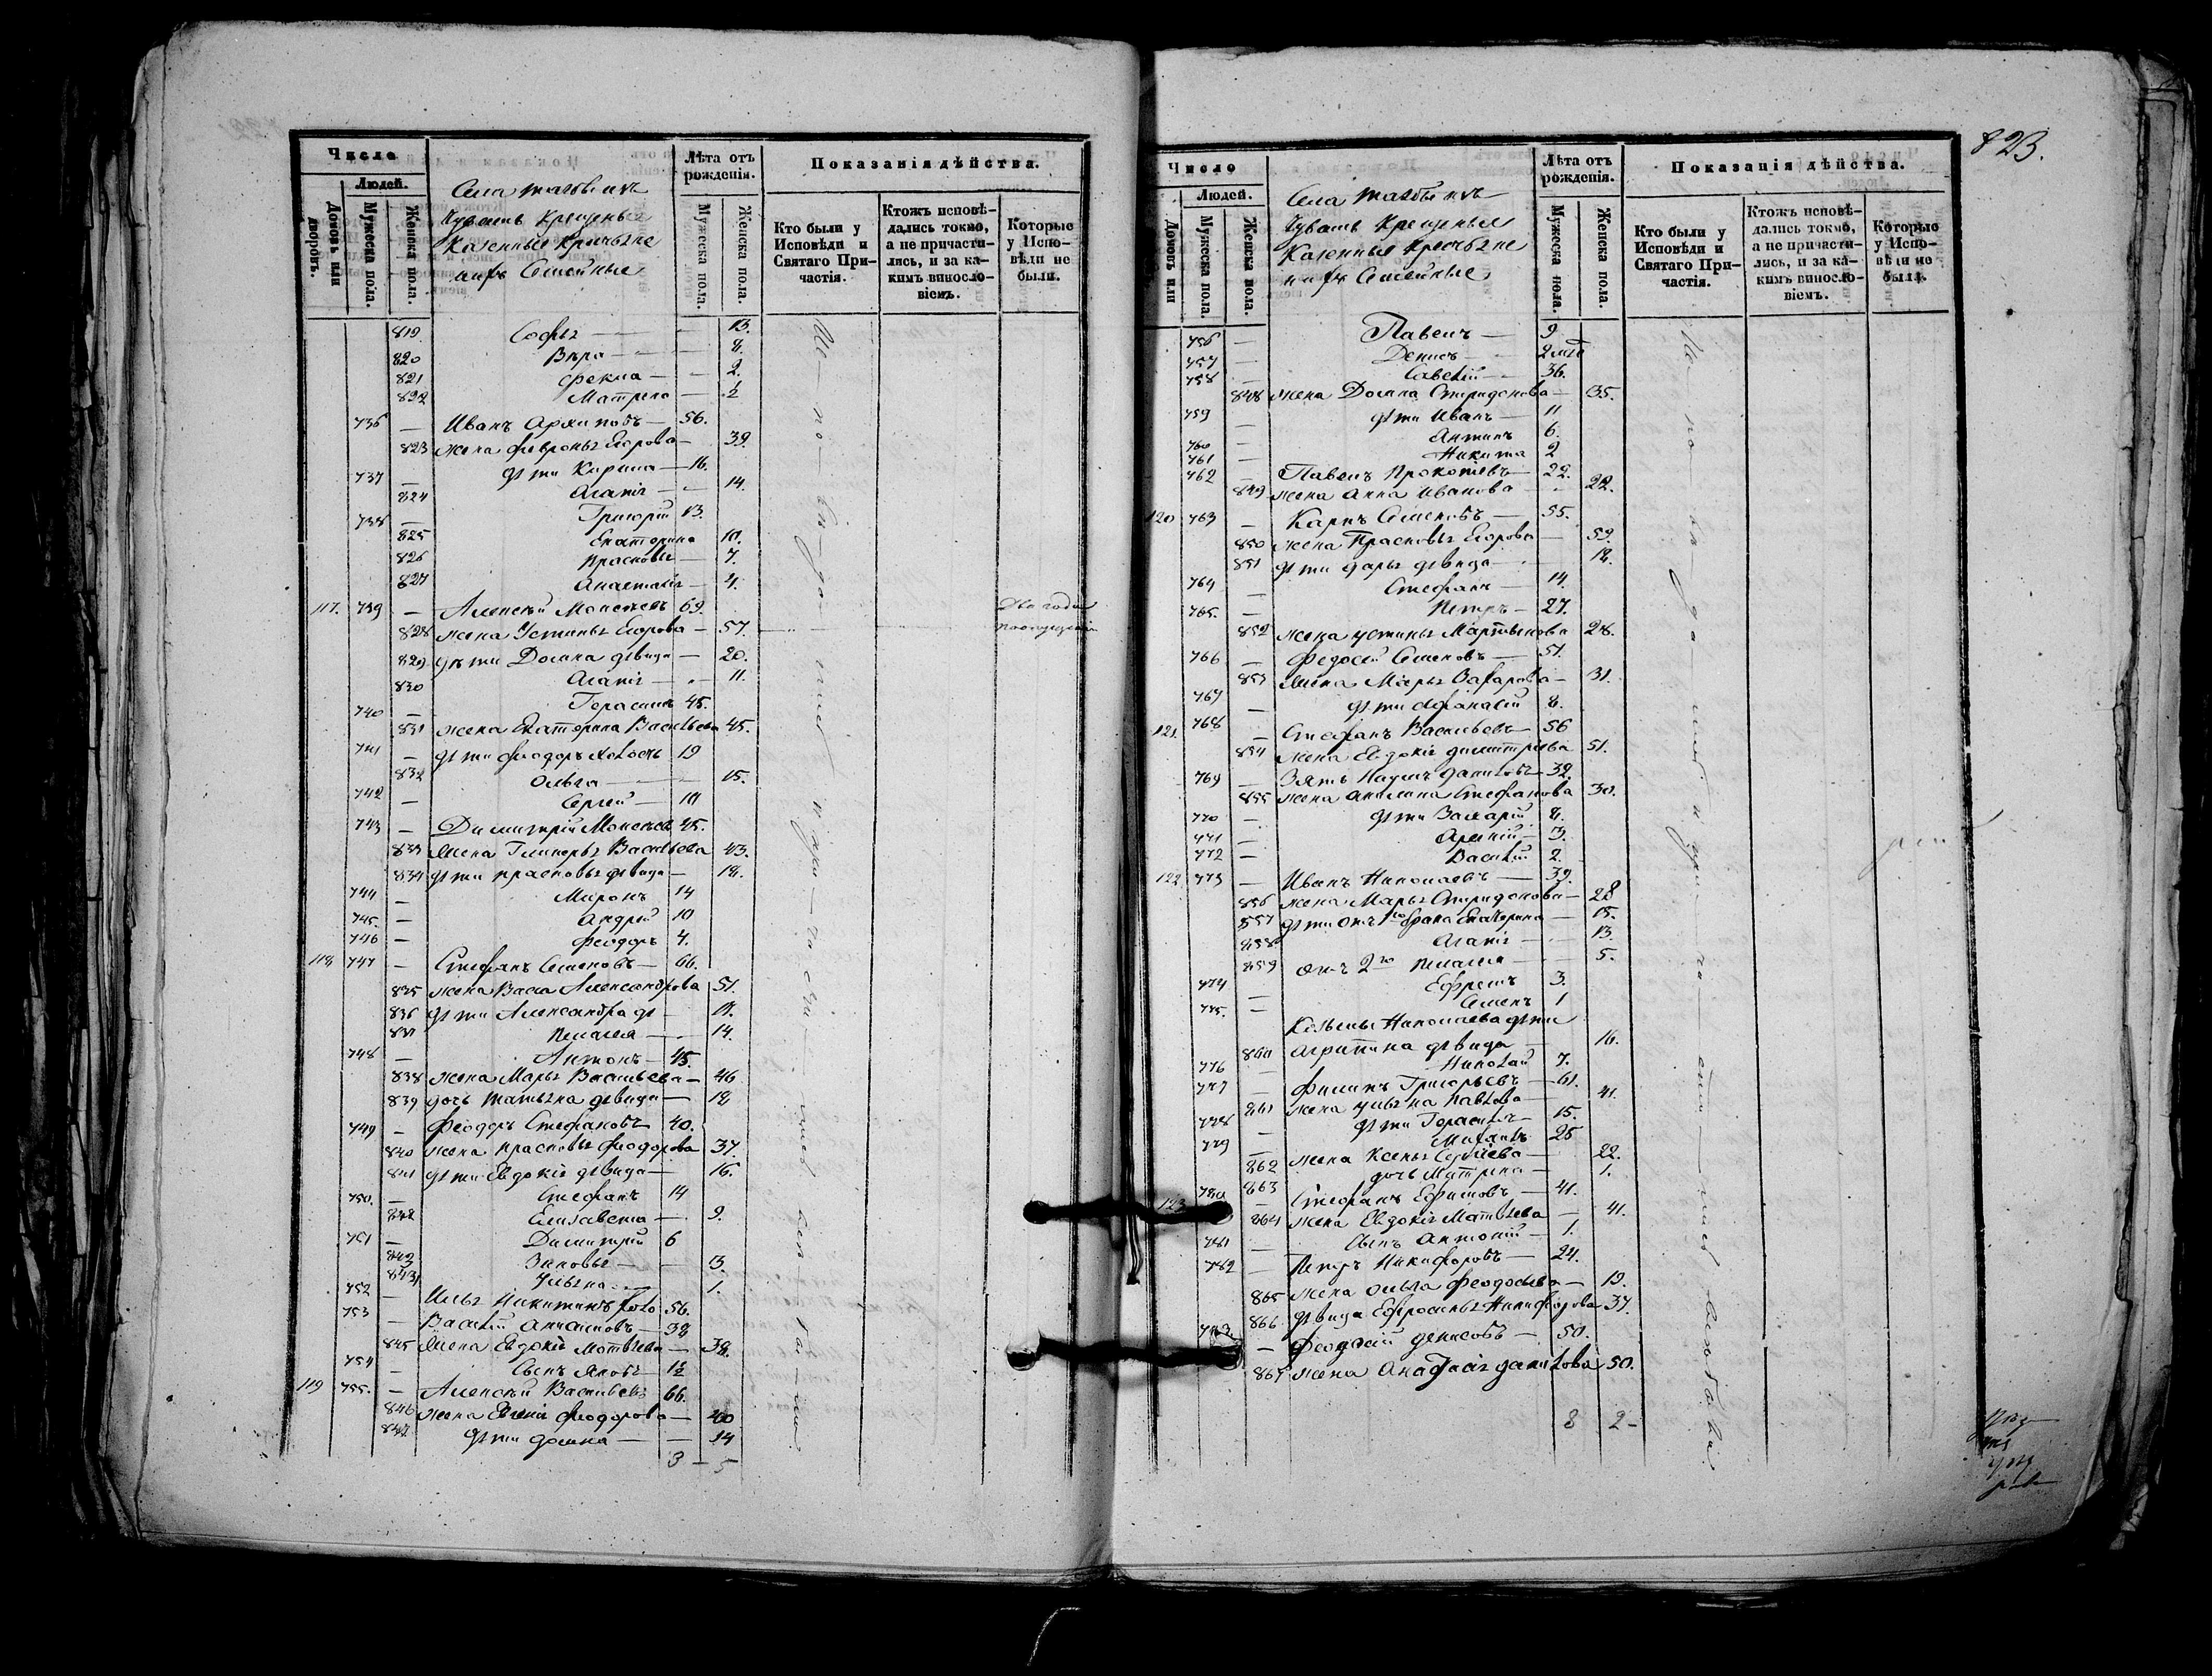 Число
Людей.
Домовъ или дворовъ.
Мужеска пола.
Женска пола.
Села
Чувашъ Крещеныя
Казенныя Крестьяне
и ихъ Семейные
Лѣта отъ рожденія.
Мужеска пола.
Женска пола.
Показанія дѣйства.
Кто были у Исповѣди и Святаго Причастія.
Ктожъ исповѣдались токмо, а не причастились, и за какимъ винословіемъ.
Которые у Исповѣди не были.
819 Софья — 13.
820 Вѣра — 8.
821 Фекла — 2.
822 Матрена — ½
736 — Иванъ Архиповъ — 56.
823 жена Февронья Егорова — 39.
737 — дѣти Кирила — 16.
824 Агапія — 14.
738 — Григорій 13.
825 Екатерина 10.
826 Прасковья — 7.
827 Анастасія — 4.
117. 739 — Алексѣй Моисеевъ 69. Два года
828 жена Устинья Егорова — 57.
829 дѣти Домна дѣвица — 20.
830 Агапія — 11.
740 — Герасимъ 45.
831 жена Екатерина Васильева 45.
741 — дѣти Феодоръ холостъ 19
832 Ольга — 15.
742 — Сергей — 10
743 — Димитрій Моисеевъ 45.
833 жена Гликерья Васильева 43.
834 дѣти Прасковья дѣвица — 18.
744 — Миронъ 14
745. — Андрей 10
746 — Феодоръ 4.
118 747 — Стефанъ Семеновъ — 66.
835 жена Васса Александрова 51.
836 дѣти Александра дѣ —
837 Пелагея — 14.
748 — Антонъ — 45.
838 жена Марья Васильева — 46
839 дочь Татьяна дѣвица — 18
749 — Феодоръ Стефановъ 40.
840 жена Прасковья Феодорова 37.
841 дѣти Евдокія дѣвица — 16.
750. — Стефанъ 14
842 Елизавета — 9.
751 — Димитрій 6
843 Зиновья — 3.
843 Ульяна — 1.
752 — Илья Никитинъ холо 56.
753 — Василій — 38
845 жена Евдокія Матвѣева — 38.
754 — Сынъ Яковъ 1½
119 755. — Алексѣй Васильевъ 66.
846 жена Евгенія Феодорова — 60
847 дѣти Домна — 14
3 — 5
823.
Число
Людей.
Домовъ или
Мужеска пола.
Женска пола.
Села
Чувашъ Крещеныя
Казенныя Крестьяне
и ихъ Семейные
Лѣта отъ рожденія.
Мужеска пола.
Женска пола.
Показанія дѣйства.
Кто были у Исповѣди и Святаго Причастія.
Ктожъ исповѣдались токмо, а не причастились, и за какимъ винословіемъ.
Которые у Исповѣди не были.
756 — Павелъ — 9
757 — Денисъ — 2
758 — Савелій — 36.
848 жена Домна Спиридонова — 35.
759 — дѣти Иванъ — 11
760 — Антипъ 6.
761 — Никита 2
762 — Павелъ Прокопьевъ — 22.
849 жена Анна Иванова — 22.
120 763 — Карпъ Семеновъ — 55.
850 жена Прасковья Егорова — 59.
851 дѣти Дарья дѣвица — 18.
764 — Стефанъ — 14.
765. — Петръ — 27.
852 жена Устинья Мартынова 28.
766 — Федосей Семеновъ — 51.
853 жена Марья Захарова — 31.
767 — дѣти Афанасій 8.
121. 768 — Стефанъ Васильевъ — 56
854 жена Евдокія Димитріева 51.
769 — Зять Наумъ Даниловъ — 32.
855 жена Стефанова 30.
770 — дѣти Захарій 8.
771 — 3.
772 — Василій 2.
122 773 — Иванъ Николаевъ — 39.
856 жена Марья Спиридонова — 28
857 дѣти отъ 1го брака Екатерина — 15.
858 Агапія — 13.
859 отъ 2го Пелагея — 5.
774 — Ефремъ 3.
775. — Семенъ 1
Козьмы Николаева дѣти
860 Агрипина дѣвица — 16.
776 — Николай 7.
777 — Филипъ Григорьевъ — 61.
861 жена Ульяна Павлова — 41.
778 — дѣти Герасимъ — 15.
779 — Михаилъ 25
862 жена Ксенья Сергѣева — 22.
863 дочь Матрена — 1.
123 780 — Стефанъ Ефимовъ — 41.
864 жена Евдокія Матвѣева — 41.
781 — Сынъ Антоній — 1.
782 — Петръ Никифоровъ — 24.
865 жена Ольга Феодосѣева — 19.
866 дѣвица Ефросинья Никифорова 37.
783 — Феодосій Денисовъ — 50.
867 жена Анастасія Данилова 50.
8 2 —